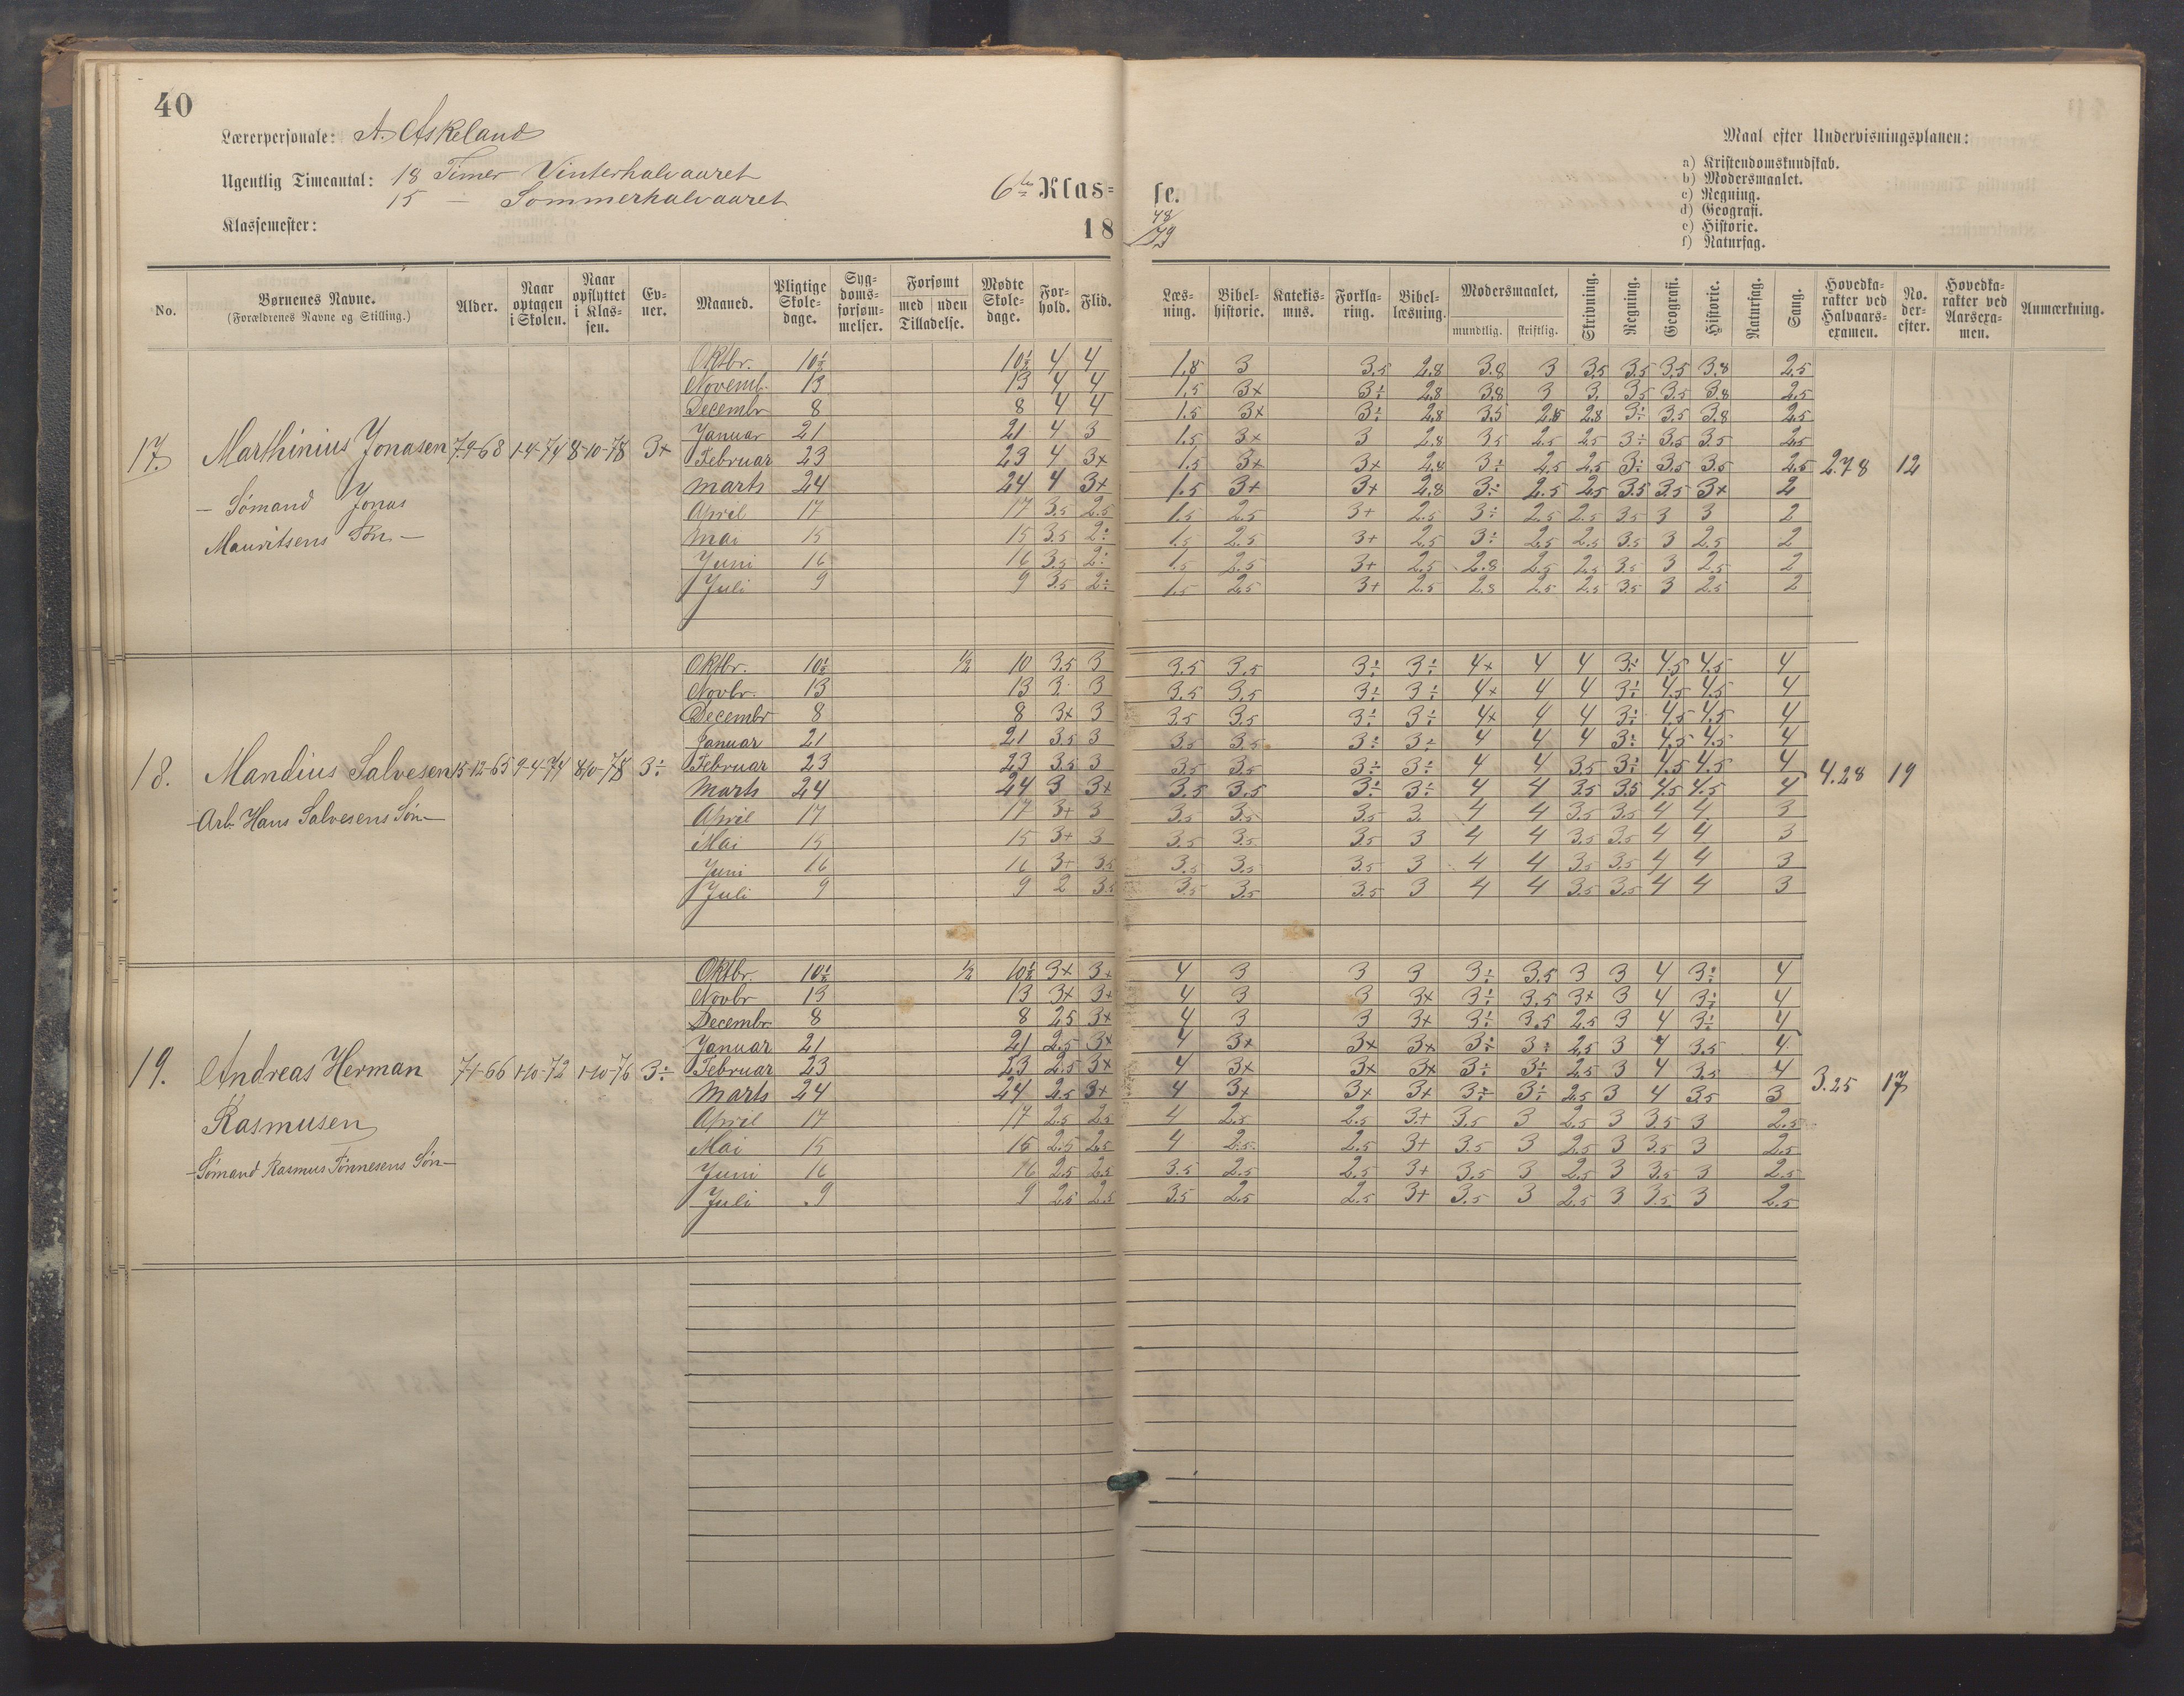 40
Lærerpersonale: A. Askeland
Ugentlig Timeantal: 18 Timer Vinterhalvaaret
15 — Sommerhalvaaret
Klassemester:
6te Klas=
se.
18
78/79
Maal efter Undervisningsplanen:
a) Kristendomskundskab.
b) Modersmaalet.
c) Regning.
d) Geografi.
e) Historie.
f) Naturfag.
No. | Børnenes Navne. (Forældrenes Navne og Stilling.) | Alder. | Naar optagen i Skolen. | Naar opflyttet i Klassen. | Evner. | Maaned. | Pligtige Skoledage. | Sygdomsforsømmelser. | Forsømt med uden Tilladelse. | Mødte Skoledage. | Forhold. | Flid. | Læsning. | Bibelhistorie. | Katekismus. | Forklaring. | Bibellæsning. | Modersmaalet, mundtlig. skriftlig. | Skrivning. | Regning. | Geografi. | Historie. | Naturfag. | Sang. | Hovedkarakter ved Halvaarsexamen. | No. derefter. | Hovedkarakter ved Aarsexamen. | Anmærkning.
Oktbr. 10½ 10½ 4 4 1.8 3 3.5 2.8 3.8 3 3.5 3.5 3.5 3.8 2.5
Novemb. 13 13 4 4 1.5 3x 3÷ 2.8 3.8 3 3. 3.5 3.5 3.8 2.5
Decembr 8 8 4 4 1.5 3x 3÷ 2.8 3.5 2.5 2.8 3÷ 3.5 3.8 2.5
Januar 21 21 4 3 1.5 3x 3 2.8 3.5 2.5 2.5 3÷ 3.5 3.5 2.5
17. Marthinius Jonasen 7-9-68 1-4-74 8-10-78 3x Februar 23 23 4 3x 1.5 3x 3x 2.8 3÷ 2.5 2.5 3÷ 3.5 3.5 2.5 2.78 12
Marts 24 24 4 3x 1.5 3+ 3+ 2.8 3÷ 2.5 2.5 3.5 3.5 3x 2
— Sømand Jonas
April 17 17 3.5 2.5 1.5 2.5 3+ 2.5 3÷ 2.5 2.5 3.5 3 3 2
Mauritsens Søn. —
Mai 15 15 3.5 2÷ 1.5 2.5 3+ 2.5 3÷ 2.5 2.5 3.5 3 2.5 2
Juni 16 16 3.5 2÷ 1.5 2.5 3+ 2.5 2.8 2.5 2.5 3.5 3 2.5 2
Juli 9 9 3.5 2÷ 1.5 2.5 3+ 2.5 2.8 2.5 2.5 3.5 3 2.5 2
Oktbr. 10½ ½ 10 3.5 3 3.5 3.5 3÷ 3÷ 4x 4 4 3÷ 4.5 4.5 4
Novbr. 13 13 3. 3 3.5 3.5 3÷ 3÷ 4x 4 4 3÷ 4.5 4.5 4
Decembr 8 8 3x 3 3.5 3.5 3÷ 3÷ 4x 4 4 3÷ 4.5 4.5 4
Januar 21 21 3.5 3 3.5 3.5 3÷ 3÷ 4 4 4 3÷ 4.5 4.5 4
18. Mandius Salvesen 15-12-65 9-4-74 8-10-78 3÷ Februar 23 23 3.5 3 3.5 3.5 3÷ 3÷ 4 4 3.5 3÷ 4.5 4.5 4 4.28 19
Marts 24 24 3 3+ 3.5 3.5 3÷ 3÷ 4 4 3.5 3.5 4.5 4.5 4
— Arb. Hans Salvesens Søn —
April 17 17 3+ 3 3.5 3.5 3.5 3. 4 4 3.5 3.5 4 4 3
Mai 15 15 3+ 3 3.5 3.5 3.5 3 4 4 3.5 3.5 4 4 3
Juni 16 16 3+ 3.5 3.5 3.5 3.5 3 4 4 3.5 3.5 4 4 3
Juli 9 9 2 3.5 3.5 3.5 3.5 3 4 4 3.5 3.5 4 4 3
Oktbr. 10½ ½ 10½ 3x 3x 4 3 3 3 3÷ 3.5 3 3 4 3÷ 4
Novbr 13 13 3x 3+ 4 3 3 3x 3÷ 3.5 3x 3 4 3÷ 4
Decembr 8 8 2.5 3x 4 3 3 3x 3÷ 3.5 2.5 3 4 3÷ 4
Januar 21 21 2.5 3x 4 3x 3x 3x 3÷ 3÷ 2.5 3 4 3.5 4
19. Andreas Herman 7-1-66 1-10-72 1-10-76 3÷ Februar 23 23 2.5 3x 4 3x 3x 3x 3÷ 3÷ 2.5 3 4 3.5 4 3.25 17
Marts 24 24 2.5 3+ 4 3+ 3+ 3+ 3÷ 3÷ 2.5 3 4 3.5 3
Rasmusen
April 17 17 2.5 2.5 4 2.5 2.5 3+ 3.5 3 2.5 3 3.5 3 2.5
Mai 15 15 2.5 2.5 4 2.5 2.5 3+ 3.5 3 2.5 3 3.5 3 2.5
— Sømand Rasmus Tønnesens Søn —
Juni 16 16 2.5 2.5 3.5 2.5 2.5 3+ 3.5 3 2.5 3 3.5 3 2.5
Juli 9 9 2.5 2.5 3.5 2.5 2.5 3+ 3.5 3 2.5 3 3.5 3 2.5